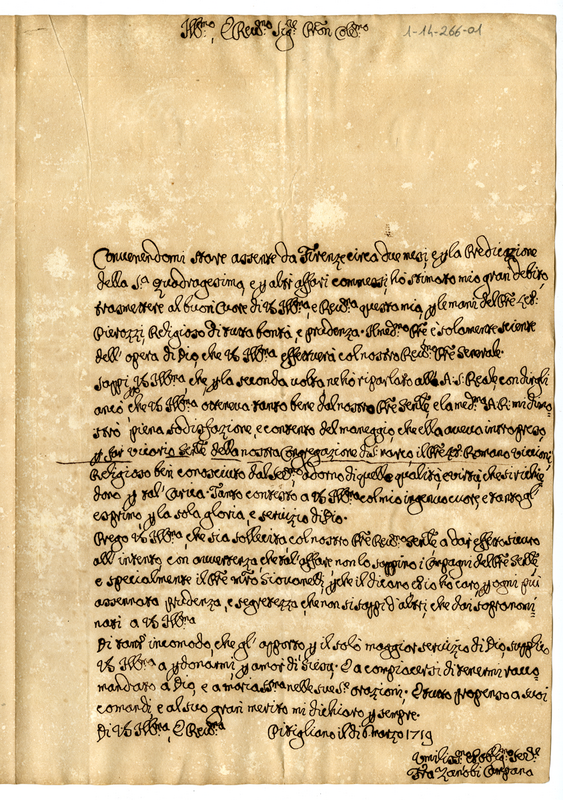 Ill.mo, e Reu.mo Sig.re Pron Col.mo
1-14-266-01
Conuenendomi stare assente da Firenze circa due mesi, e p la Predicazione
della S.a Quadragesima, e p altri affari commessi, ho stimato mio gran debito,
trasmettere al buon Cuore di VS Ill.ma, e Reu.ma questa mia, p le mani del Pre
Pierozzi, Religioso di tutta bontà, e prudenza. Il med.mo Pre è solamente sciente
dell'opera di Dio, che VS Ill.ma effettuerà col nostro Reu.mo Pre Generale.
Sappi VS Ill.ma, che p la seconda uolta ne hò riparlato all' A. S. Reale con dirgli
anco che VS Ill.ma otteneua tanto bene dal nostro Pre Gen.le, e la med.ma A. R. mi dimo=
strò piena sodisfazione, e contento del maneggio, che ella aueua intrapreso,
p far Uicario Gen.le della nostra Congregazione di S. Marco il Romano Uiccioni,
Religioso ben conosciuto dal adorno di quelle qualità, e uirtù, che si richie=
dono p tal' Carica. Tanto contesto a VS Ill.ma col mio ingenuo cuore, e tanto gl'
esprimo p la sola gloria, e seruizio di Dio.
Prego VS Ill.ma, che sia sollecita col nostro Pre Reu.mo Gen.le a dar effetto sicuro
all' intento, con auuertenza, che tal' affare non lo sappino i Conpagni del Pre Gen.le,
e specialmente il Pre Mro Giouanelli, p che il dicano ch'io ho caro, p ogni più
assennata prudenza, e segretezza, che non si sappi d'altri, che dai sopranomi=
nati a VS Ill.ma
Di tant' incomodo, che gl' apporto p il solo maggior seruizio di Dio, supplico
VS Ill.ma a p donarmi, p amor di Giesù. E a compiacersi di tenermi racco=
mandato a Dio, e a Maria nelle sue S.e orazioni. E tutto propenso a suoi
comandi, e al suo gran merito mi dichiaro p sempre.
Di VS Ill.ma, e Reu.ma Pitigliano il dì 6 Marzo 1719
Umiliss.mo et Obblig.mo Ser.re
Fra Zanobi Campana